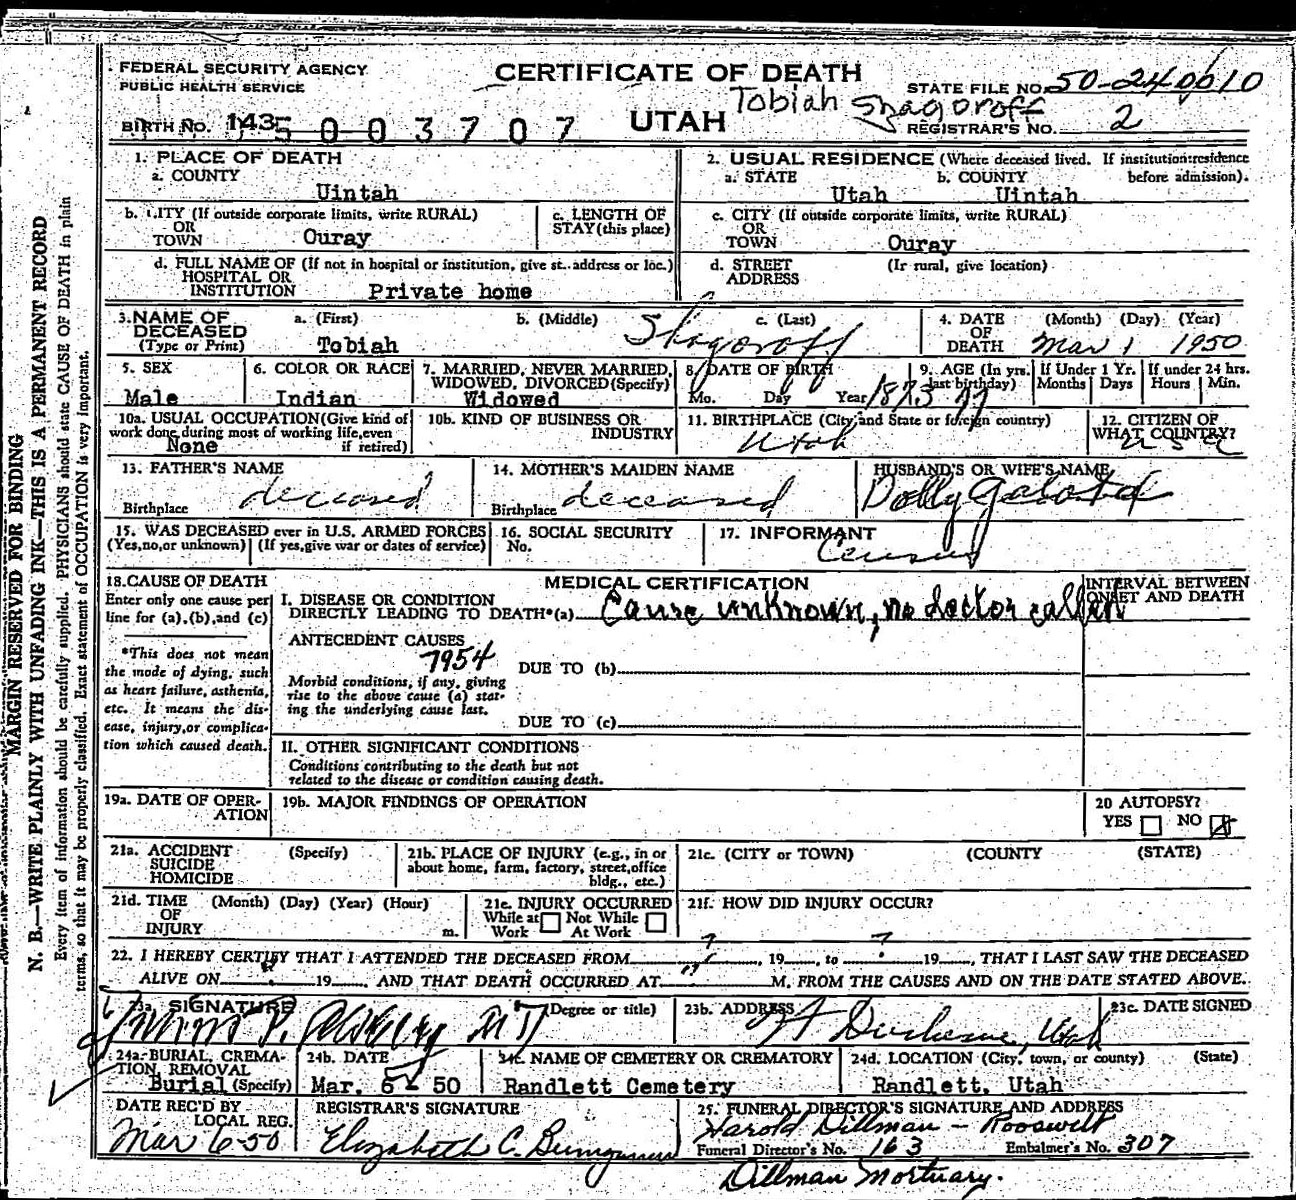 FEDERAL SECURITY AGENCY
PUBLIC HEALTH SERVICE
CERTIFICATE OF DEATH
STATE FILE NO. 50-240010
Tobiah Shagoroff
BIRTH NO. 143 5003707
UTAH
REGISTRAR'S NO. 2
1. PLACE OF DEATH
a. COUNTY
Uintah
2. USUAL RESIDENCE (Where deceased lived. If institution: residence before admission).
a. STATE Utah b. COUNTY Uintah
b. CITY (If outside corporate limits, write RURAL)
OR
TOWN Ouray
c. LENGTH OF
STAY (this place)
c. CITY (If outside corporate limits, write RURAL)
OR
TOWN Ouray
d. FULL NAME OF (If not in hospital or institution, give st. address or loc.)
HOSPITAL OR
INSTITUTION Private home
d. STREET ADDRESS (If rural, give location)
3. NAME OF DECEASED (Type or Print)
a. (First) b. (Middle) c. (Last)
Tobiah Shagoroff
4. DATE OF DEATH (Month) (Day) (Year)
Mar 1 1950
5. SEX
Male
6. COLOR OR RACE
Indian
7. MARRIED, NEVER MARRIED, WIDOWED, DIVORCED (Specify)
Widowed
8. DATE OF BIRTH
Mo. Day Year 1873
9. AGE (In yrs. last birthday)
77
If Under 1 Yr. Months Days
If under 24 hrs. Hours Min.
10a. USUAL OCCUPATION (Give kind of work done during most of working life, even if retired)
None
10b. KIND OF BUSINESS OR INDUSTRY
11. BIRTHPLACE (City and State or foreign country)
Utah
12. CITIZEN OF WHAT COUNTRY?
USA
13. FATHER'S NAME
deceased
Birthplace
14. MOTHER'S MAIDEN NAME
deceased
Birthplace
HUSBAND'S OR WIFE'S NAME
Dolly
15. WAS DECEASED ever in U.S. ARMED FORCES
(Yes, no, or unknown) (If yes, give war or dates of service)
16. SOCIAL SECURITY
No.
17. INFORMANT
Census
18. CAUSE OF DEATH
Enter only one cause per line for (a), (b), and (c)
*This does not mean the mode of dying, such as heart failure, asthenia, etc. It means the disease, injury, or complication which caused death.
MEDICAL CERTIFICATION
INTERVAL BETWEEN ONSET AND DEATH
I. DISEASE OR CONDITION
DIRECTLY LEADING TO DEATH*(a) Cause unknown, no doctor called
ANTECEDENT CAUSES
7954
DUE TO (b)
Morbid conditions, if any, giving rise to the above cause (a) stating the underlying cause last.
DUE TO (c)
II. OTHER SIGNIFICANT CONDITIONS
Conditions contributing to the death but not related to the disease or condition causing death.
19a. DATE OF OPERATION
19b. MAJOR FINDINGS OF OPERATION
20 AUTOPSY?
YES NO
21a. ACCIDENT SUICIDE HOMICIDE (Specify)
21b. PLACE OF INJURY (e.g., in or about home, farm, factory, street, office bldg., etc.)
21c. (CITY or TOWN) (COUNTY) (STATE)
21d. TIME OF INJURY (Month) (Day) (Year) (Hour) m.
21e. INJURY OCCURRED
While at Work Not While At Work
21f. HOW DID INJURY OCCUR?
22. I HEREBY CERTIFY THAT I ATTENDED THE DECEASED FROM ?, 19, to ? 19, THAT I LAST SAW THE DECEASED
ALIVE ON 19, AND THAT DEATH OCCURRED AT M. FROM THE CAUSES AND ON THE DATE STATED ABOVE.
23a. SIGNATURE (Degree or title)
MD
23b. ADDRESS
Ft Duchesne, Utah
23c. DATE SIGNED
24a. BURIAL, CREMATION, REMOVAL (Specify)
Burial
24b. DATE
Mar. 6 - 50
24c. NAME OF CEMETERY OR CREMATORY
Randlett Cemetery
24d. LOCATION (City, town, or county) (State)
Randlett, Utah
DATE REC'D BY LOCAL REG.
Mar 6-50
REGISTRAR'S SIGNATURE
Elizabeth C.
25. FUNERAL DIRECTOR'S SIGNATURE AND ADDRESS
Harold Dillman - Roosevelt
Funeral Director's No. 163 Embalmer's No. 307
Dillman Mortuary.
MARGIN RESERVED FOR BINDING
N. B.—WRITE PLAINLY WITH UNFADING INK—THIS IS A PERMANENT RECORD
Every item of information should be carefully supplied. PHYSICIANS should state CAUSE OF DEATH in plain
terms, so that it may be properly classified. Exact statement of OCCUPATION is very important.